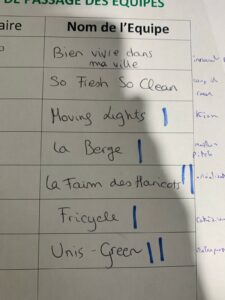 DE PASSAGE DES EQUIPES
aire
Nom de l'Equipe
Bien vivre dans
ma ville
So Fresh So Clean
Moving Lights
La Berge
La Faim des Haricots
Fricycle
Unis-Green